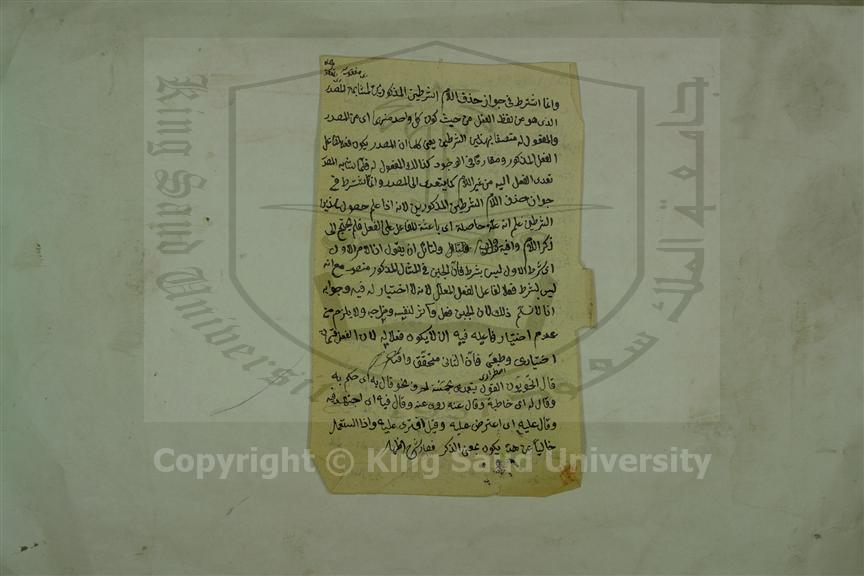 وانما اشترط في جواز حذف اللام الشرطين المذكورين لمشابهة المصدر
الذى هو من لفظ الفعل من حيث كون كل واحد منهما اى من المصدر
والمفعول له متصفا بهذين الشرطين يعنى كما ان المصدر يكون فعلا لفاعل
الفعل المذكور ومقارنا في الوجود كذلك المفعول له فلما شابه المصدر
تعدى الفعل اليه من غير اللام كما يتعدى الى المصدر وانما اشترط في
جواز حذف اللام الشرطين المذكورين لانه اذا علم حصول هذين
الشرطين علم انه علة حاصلة اى باعثة للفاعل على الفعل فلم يحتج الى
ذكر اللام وافية ولقائل ان يقول ان الامر الاول
اى شرط الاول ليس بشرط فان الجبن في المثال المذكور منصوب مع انه
ليس بشرط فعلا لفاعل الفعل المعلل لانه لا اختيار له فيه وجوابه
انا لا نسلم ذلك لان الجبن فعل وأثر لنفسه ولا يلزم من
عدم اختيار فاعله فيه ان لا يكون فعلا له لان الفعل
اختيارى وطبعى فان الثانى متحقق
اضطرارى
قال النحويون القول يتعدى بخمسة احرف نحو قال به اى حكم به
وقال له اى خاطبه وقال عنه روى عنه وقال فيه اى اجتهد فيه
وقال عليه اى اعترض عليه وقيل افترى عليه واذا استعمل
خاليا عن هذه يكون بمعنى الذكر
Copyright © King Saud University
King Saud University
جامعة الملك سعود